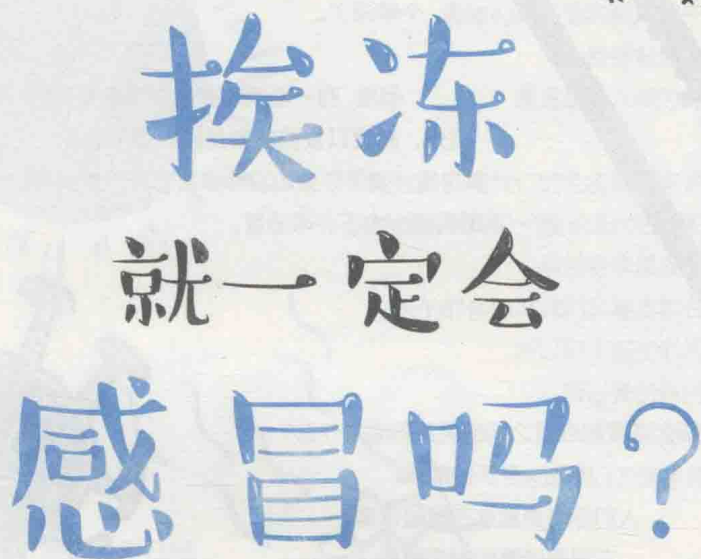 挨冻
就一定会
感冒吗?